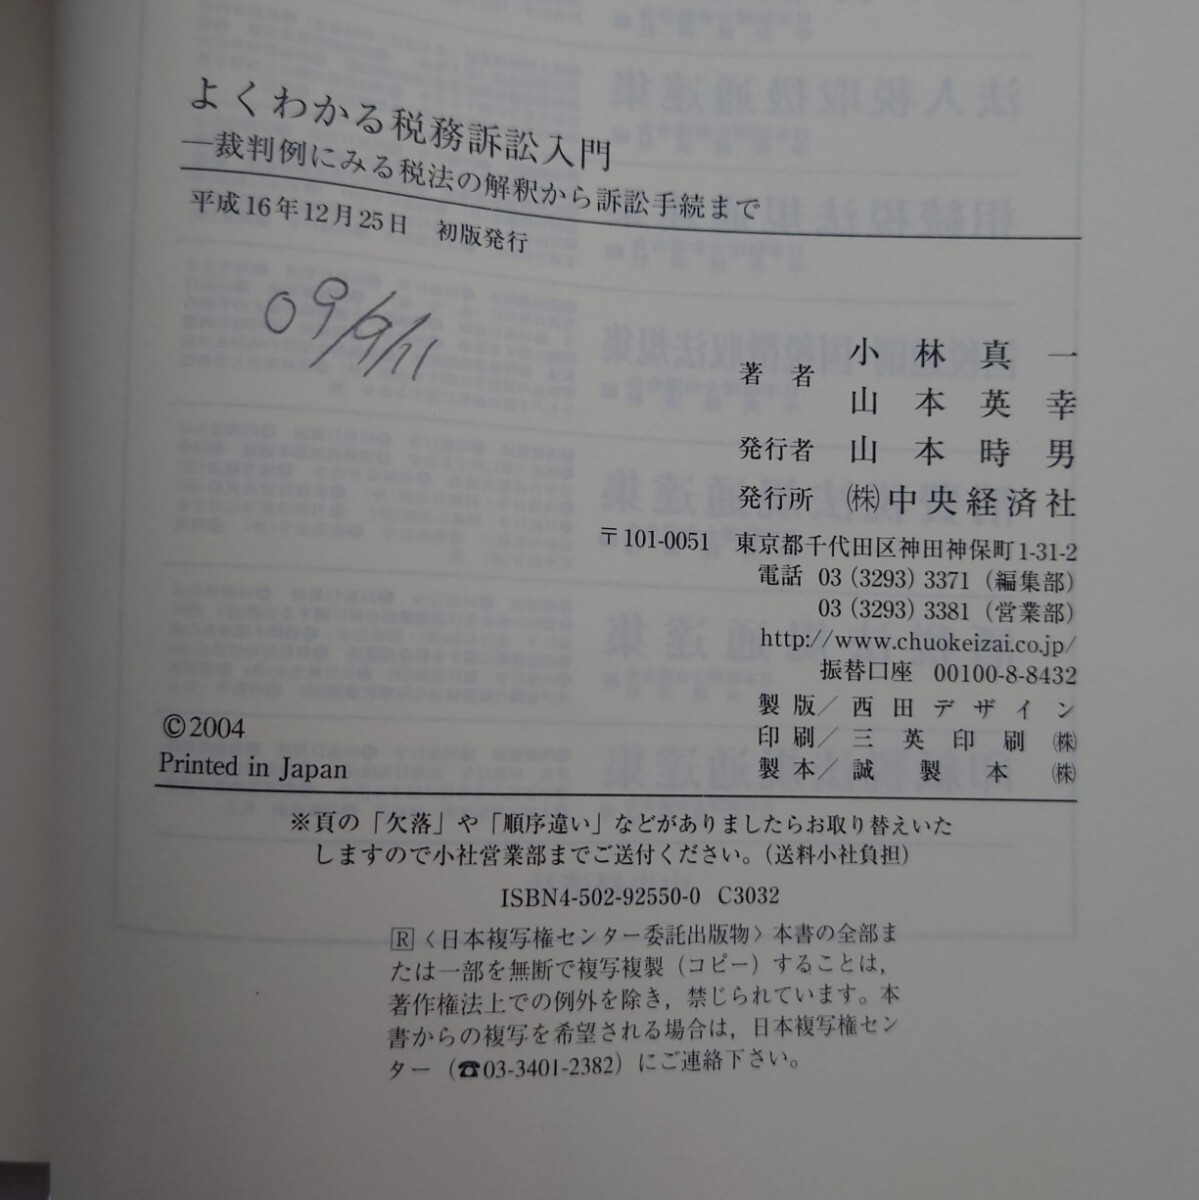 よくわかる税務訴訟入門
―裁判例にみる税法の解釈から訴訟手続まで
平成16年12月25日 初版発行
09/9/11
著者 小林真一
山本英幸
発行者 山本時男
発行所 ㈱中央経済社
〒101-0051 東京都千代田区神田神保町1-31-2
電話 03 (3293) 3371 (編集部)
03 (3293) 3381 (営業部)
http://www.chuokeizai.co.jp/
振替口座 00100-8-8432
製版/西田デザイン
印刷/三英印刷㈱
製本/誠製本㈱
©2004
Printed in Japan
※頁の「欠落」や「順序違い」などがありましたらお取り替えいた
しますので小社営業部までご送付ください。(送料小社負担)
ISBN4-502-92550-0 C3032
R〈日本複写権センター委託出版物〉本書の全部ま
たは一部を無断で複写複製(コピー)することは,
著作権法上での例外を除き,禁じられています。本
書からの複写を希望される場合は,日本複写権セン
ター(☎03-3401-2382)にご連絡下さい。